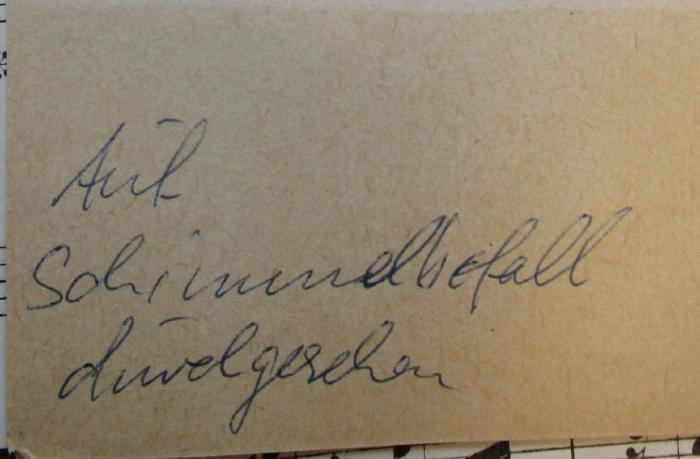 Auf
Schimmelbefall
durchgesehen